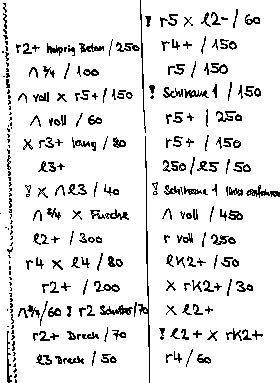 r2+ holprig Beton / 250
∧ 3/4 / 100
∧ voll × r5+ / 150
∧ voll / 60
× r3+ lang / 80
l3+
! × ∧ l3 / 40
∧ 3/4 × Furche
l2+ / 300
r4 × l4 / 80
r2+ / 200
∧ 3/4 / 60 ! r2 Schotter / 70
r2+ Dreck / 70
l3 Dreck / 50
! r5 × l2- / 60
r4+ / 150
r5 / 150
! Schikane 1 / 150
r5+ / 250
r5+ / 150
250 / l5 / 50
! Schikane 1 links einfahren
∧ voll / 450
r voll / 250
lK2+ / 50
× rK2+ / 30
× l2+
! l2+ × rK2+
r4 / 60